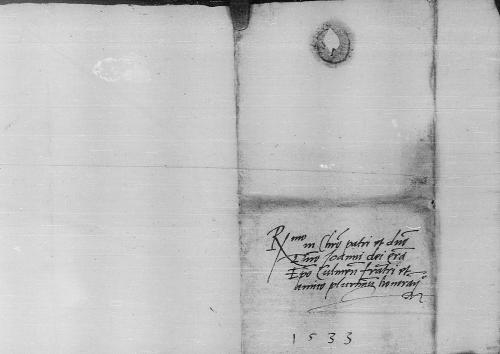 R^mo in Chrō patri et dnō
Dnō Joanni dei grā
Epō Culmen̄ fratri et
amico plurimū honoran̄
1533